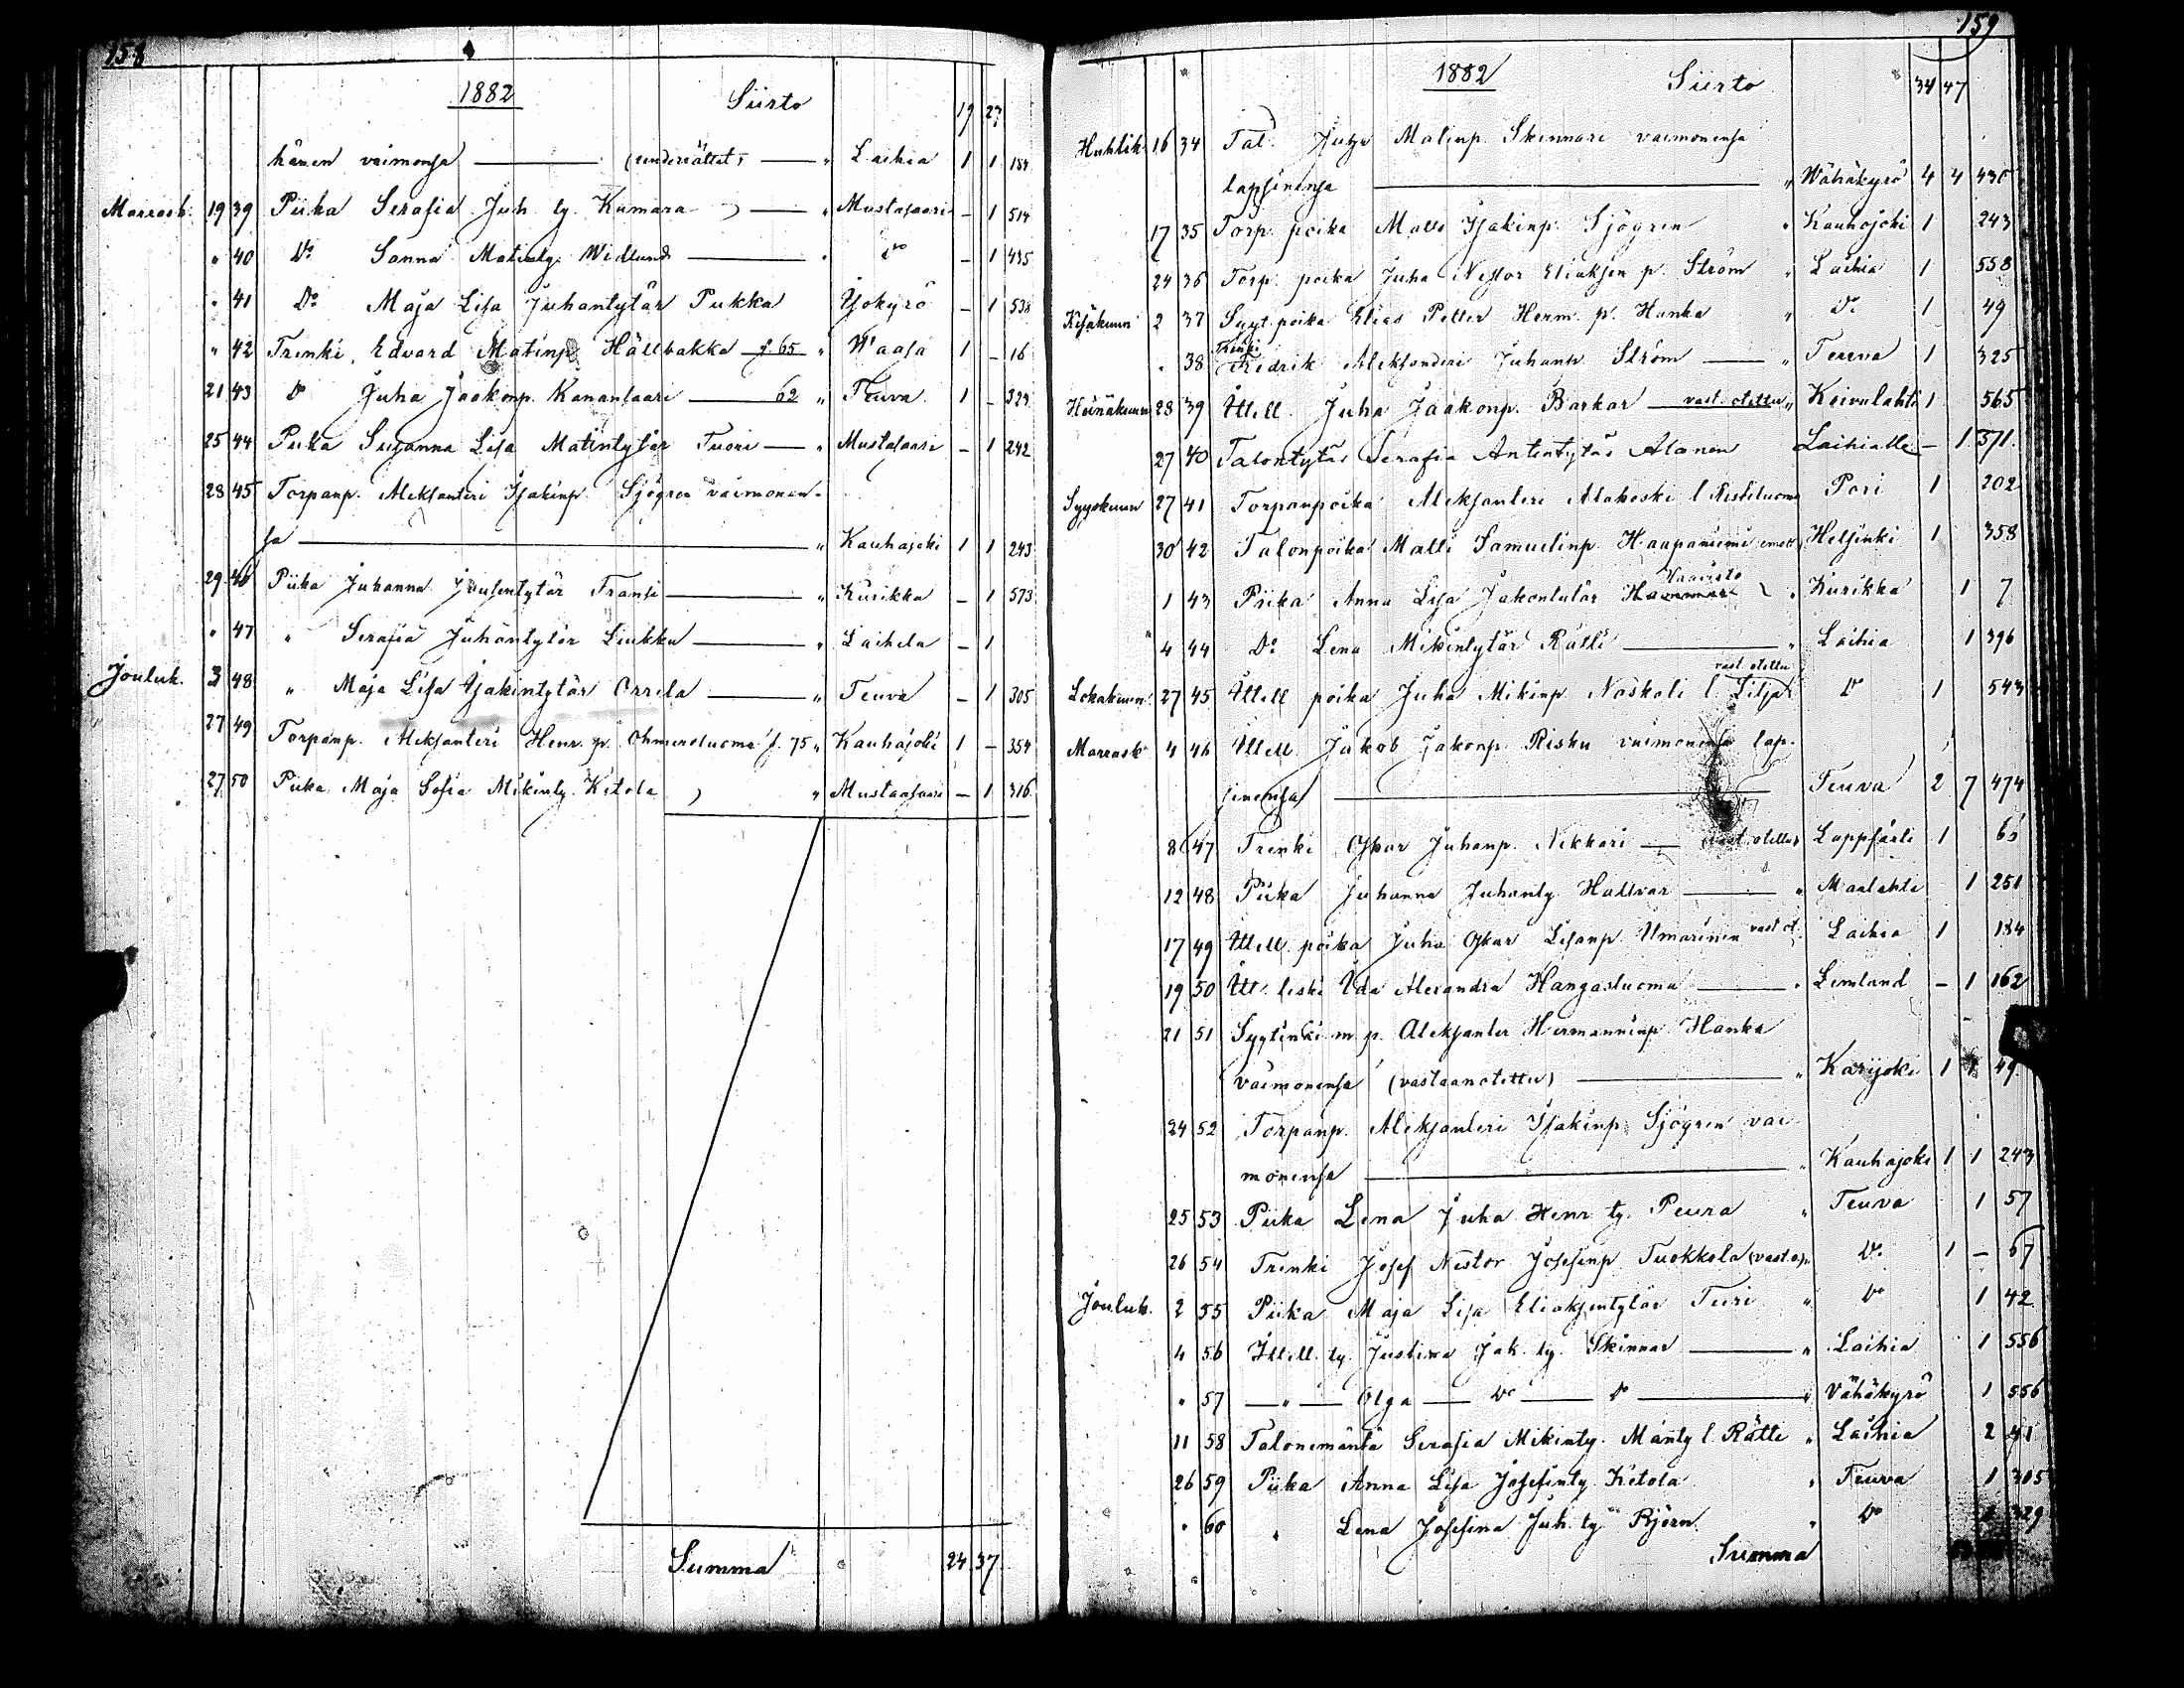 158
1882 Siirto 19 23
hänen vaimonsa (underrättat) " Laihia 1 1 184
Marrask. 19 39 Piika Serafia Juh. ty. Kamara " Mustasaari - 1 514
" 40 Do Sanna Matinty. Widlund " Do - 1 435
" 41 Do Maja Lisa Juhantytär Pukka Ylökyrö - 1 538
" 42 Trenki Edvard Matinp. Hällbakka f. 65 " Waasa 1 - 16
21 43 Do Juha Jaakonp. Kananlaari 62 " Teuva 1 - 329
25 44 Piika Susanna Lisa Matintytär Tuori " Mustasaari - 1 242
28 45 Torpanp. Aleksanteri Isakinp. Sjögren vaimonen-
sa " Kauhajoki 1 1 243
29 46 Piika Juhanna Juusentytär Fransi " Kurikka - 1 573
" 47 " Serafia Juhantytär Liukku " Laihela - 1
Jouluk. 3 48 " Maja Lisa Isakintytär Orrela " Teuva - 1 305
27 49 Torpanp. Aleksanteri Henr. p. Ohmeroluoma f. 75 " Kauhajoki 1 - 354
27 50 Piika Maja Sofia Mikinty. Ketola " Mustasaari - 1 316
Summa 24 37
159
1882 Siirto 34 47
Huhtik. 16 34 Tal. Juha Matinp. Skinnari vaimonensa
lapsinensa " Wähäkyrö 4 4 430
17 35 Torp. poika Matts Isakinp. Sjögren " Kauhajoki 1 243
24 36 Torp. poika Juha Nestor Eliaksen p. Ström " Laihia 1 558
Kesäkuun 2 37 Suyt. poika Elias Petter Herm. p. Hanka " Do 1 49
" 38 Trenki Fredrik Aleksanderi Juhanp. Ström " Teuva 1 325
Heinäkuun 28 39 Ittell. Juha Jaakonp. Barkar vast. otettu " Koivulahti 1 565
27 40 Talontytär Serafia Antintytär Alanen Laihialle - 1 571
Syyskuun 27 41 Torpanpoika Aleksanteri Alakoski l. Ristiluoma Pori 1 202
30 42 Talonpoika Matti Samuelinp. Haapaniemi Helsinki 1 358
1 43 Piika Anna Lisa Jakontytär Hammar Haavisto " Kurikka 1 7
4 44 Do Lena Mikintytär Rätti " Laihia 1 396
Lokakuun 27 45 Ittell poika Juha Mikinp. Naskali l. Lilja vast. otettu Do 1 543
Marrask. 4 46 Ittell Jakob Jakonp. Risku vaimonensa lap-
sinensa Teuva 2 7 474
8 47 Trenki Oskar Juhanp. Nikkari (vast. otettu) Lappfärti 1 65
12 48 Piika Juhanna Juhanty. Hallvar " Maalahti 1 251
17 49 Ittell. poika Juha Oskar Lisanp. Ilmarinen vast. ot. Laihia 1 184
19 50 Itt. leski Ida Alexandra Hangasluoma " Lemland - 1 162
21 51 Syytinki m. p. Aleksanter Hermanninp. Hanka
vaimonensa (vastaanotettu) " Karijoki 1 1 49
24 52 Torpanp. Aleksanteri Isakinp. Sjögren vai-
monensa " Kauhajoki 1 1 243
25 53 Piika Lena Juha Henr. ty. Peura " Teuva 1 57
26 54 Trenki Josef Nestor Josefinp. Tuokkola (vast. o) " Do 1 - 67
Jouluk. 2 55 Piika Maja Lisa Eliaksentytär Turi " Do 1 42
4 56 Ittell. ty. Justina Jak. ty. Skinnar " Laihia 1 556
" 57 " Olga Do Do " Vähäkyrö 1 556
11 58 Talonemäntä Serafia Mikinty. Mänty l. Rätti " Laihia 2 41
26 59 Piika Anna Lisa Josefinty Ketola " Teuva 1 305
" 60 " Lena Josefina Juh. ty. Björn " Do 1 329
Summa